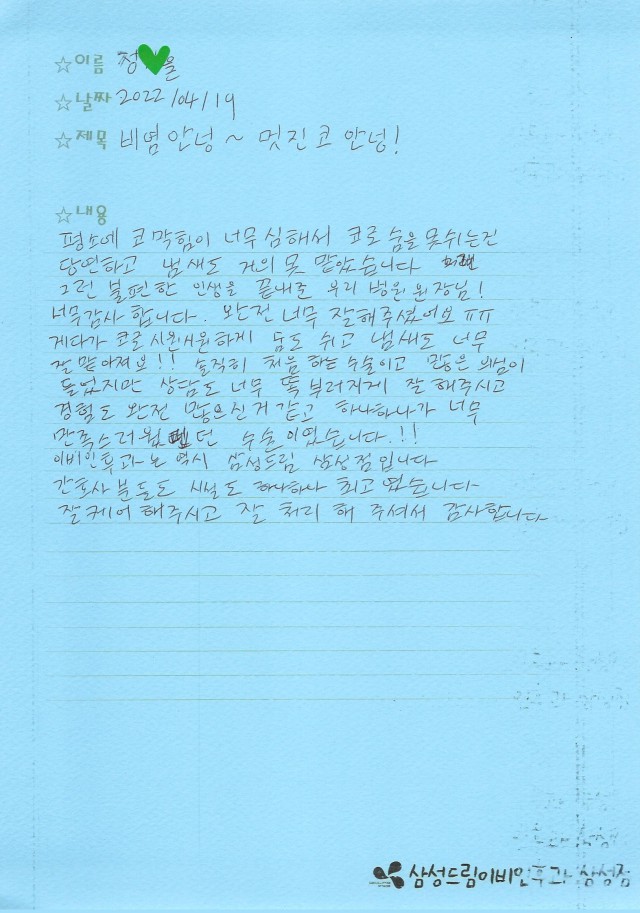 ☆이름 정 율
☆날짜 2022/04/19
☆제목 비염안녕 ~ 멋진코 안녕!
☆내용
평소에 코막힘이 너무 심해서 코로 숨을 못쉬는건
당연하고 냄새도 거의 못 맡았습니다
그런 불편한 인생을 끝내준 우리 병원 원장님!
너무감사 합니다. 완전 너무 잘해주셨어요 ㅠㅠ
게다가 코로 시원시원하게 숨도 쉬고 냄새도 너무
잘 맡아져요!! 솔직히 처음 하는 수술이고 많은 의심이
들었지만 상담도 너무 똑 부러지게 잘 해주시고
경험도 완전 많으신거 같고 하나하나가 너무
만족스러웠던 수술이였습니다.!!
이비인후과는 역시 삼성드림 삼성점입니다
간호사 분들도 시설도 하나하나 최고였습니다
잘케어 해주시고 잘 처리 해 주셔서 감사합니다
삼성드림이비인후과 삼성점